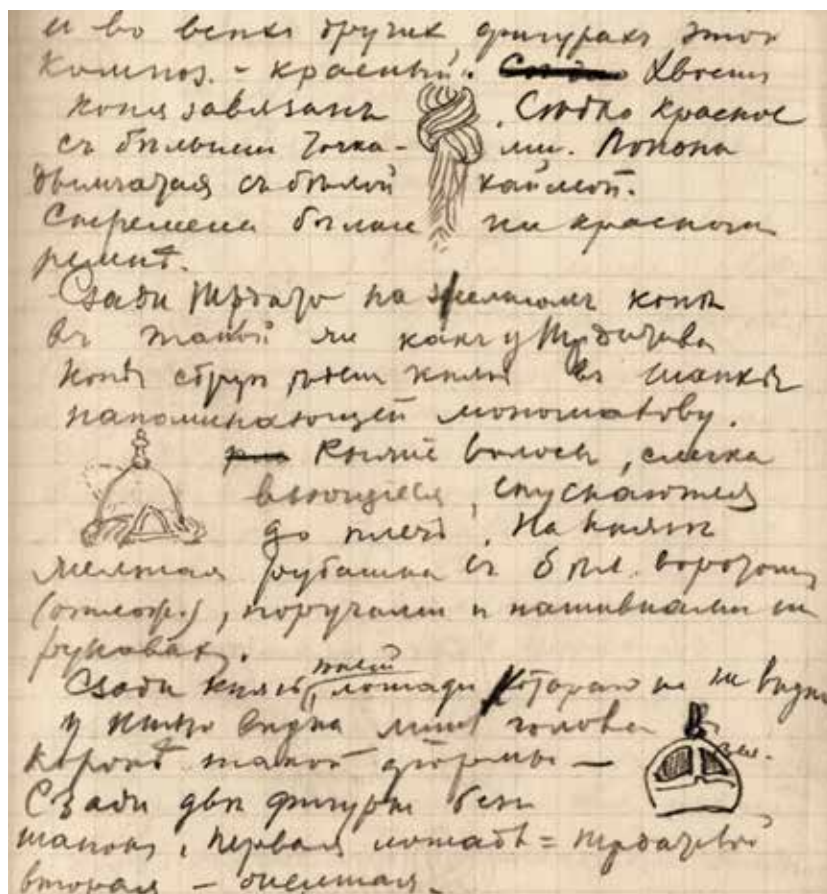 и во всѣхъ другихъ фигурахъ этой
композ. – красный. Хвостъ
коня завязанъ . Сѣдло красное
съ бѣлыми точка- ми. Попона
дымчатая съ бѣлой каймой.
Стремена бѣлыя на красномъ
ремнѣ.
Сзади на желтомъ конѣ
въ такой же какъ у
конь сбруѣ князь въ шапкѣ
напоминающей мономахову.
Рыжіе волосы, слегка
вьющіеся, спускаются
до плечъ. На князѣ
желтая рубашка съ бѣл. воротом
(отлож.), поручами и нашивками на
рукавахъ.
Сзади князь лошади которого не видно
у видна лишь голова
коронѣ такой формы –
зел.
Сзади двѣ фигуры безъ
шапокъ, первая лошадь =
вторая –